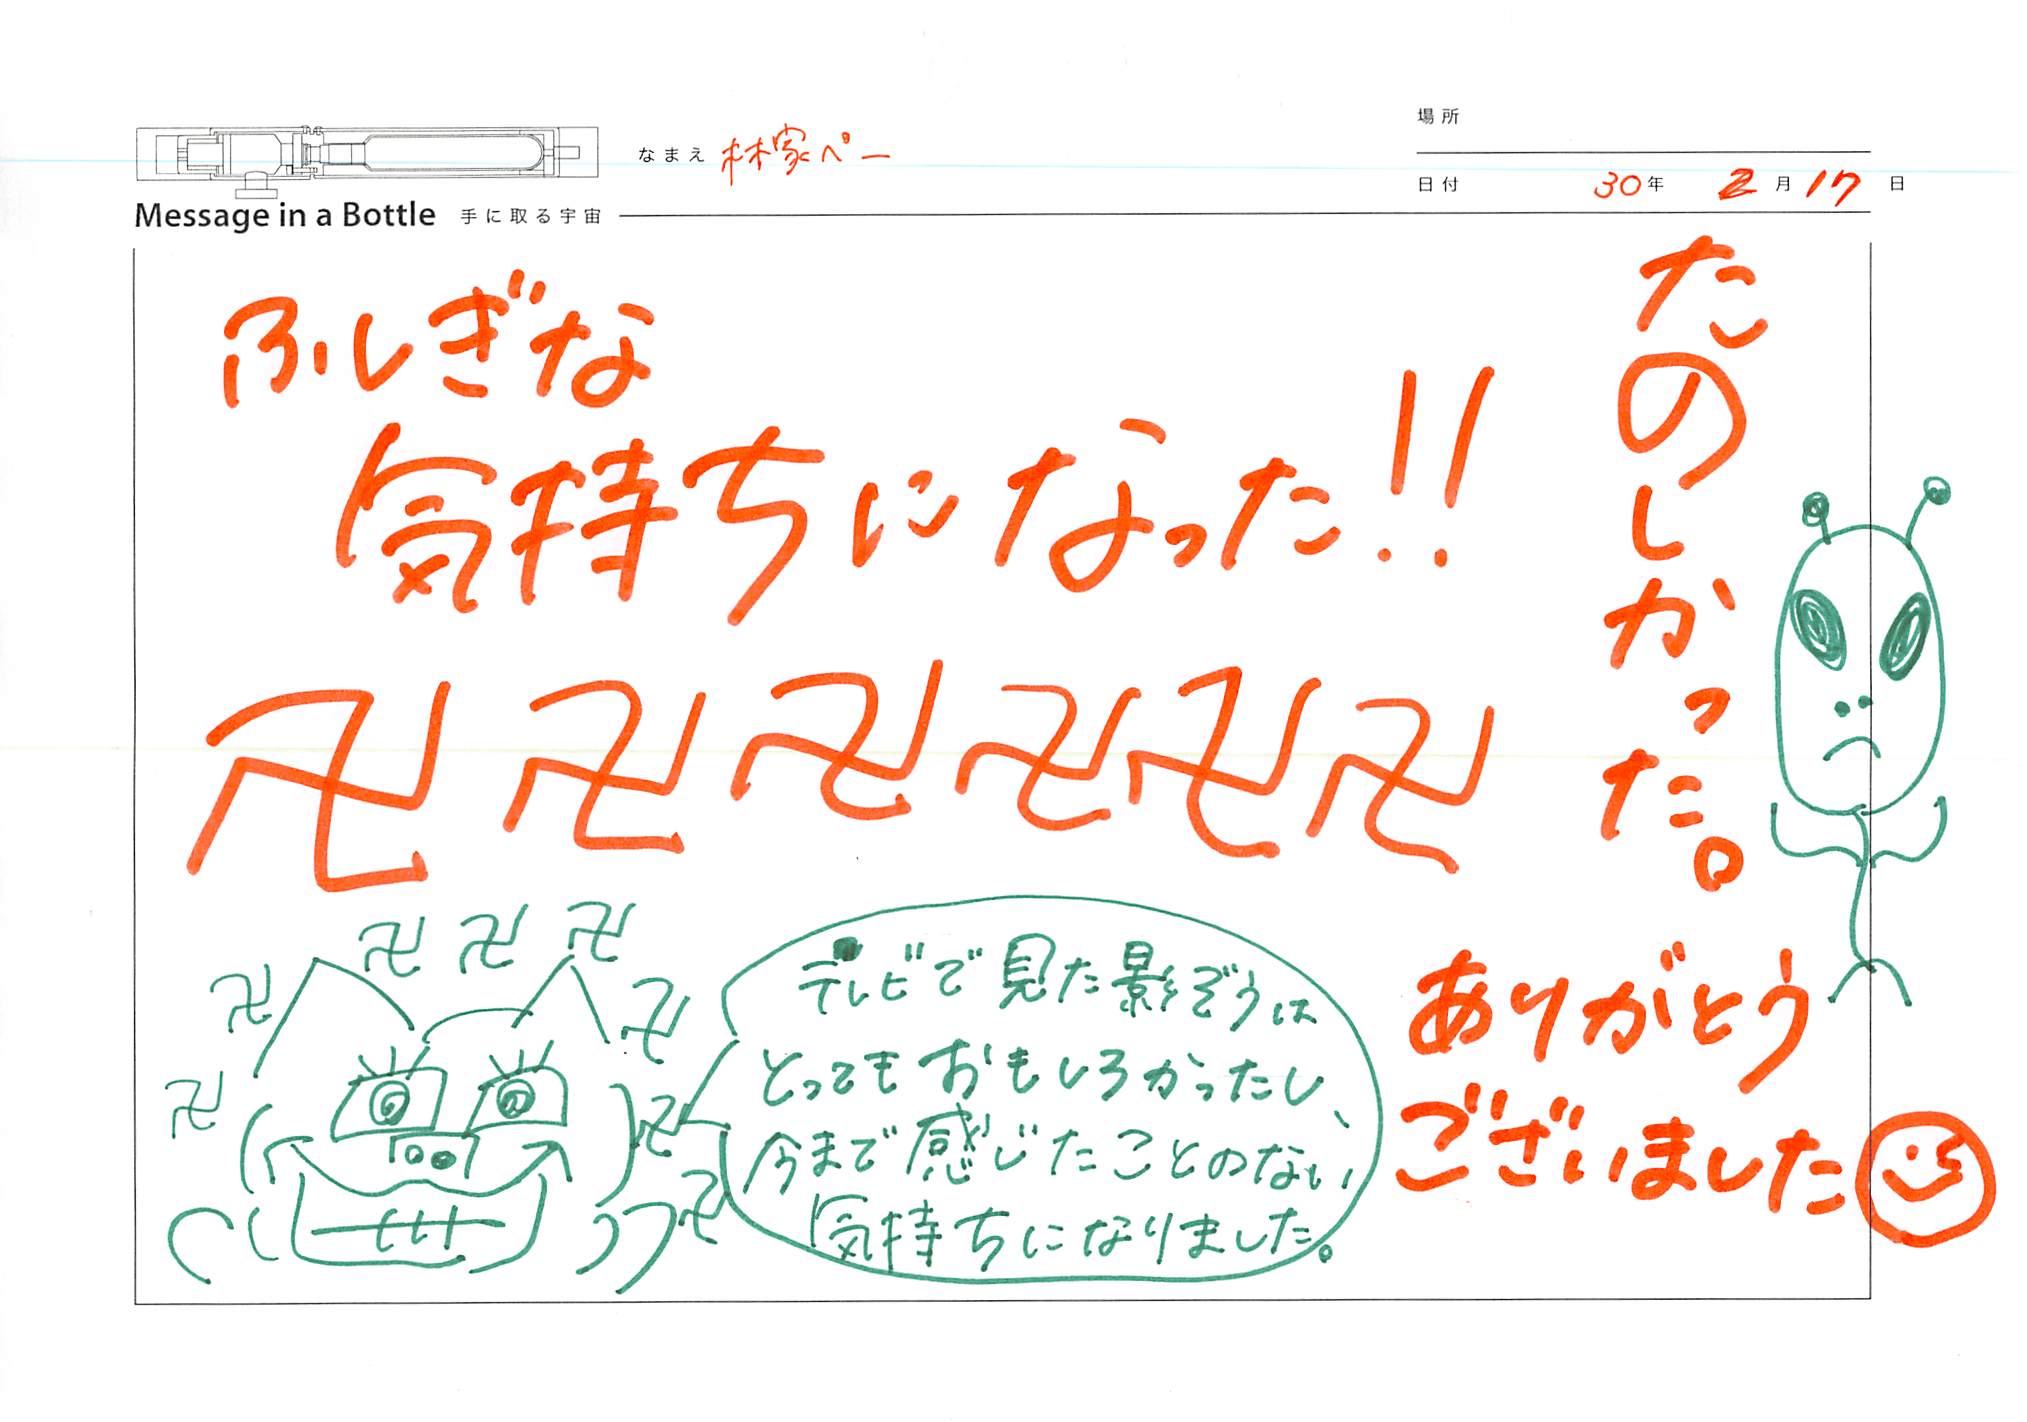 場所
なまえ 林家ペー
日付 30年 2月 17日
Message in a Bottle 手に取る宇宙
ふしぎな
気持ちになった!!
卍 卍 卍 卍 卍 卍
たのしかった。
卍 卍 卍 卍 卍 卍 卍 卍
テレビで見た影ぞうは
とってもおもしろかったし、
今まで感じたことのない
気持ちになりました。
ありがとう
ございました